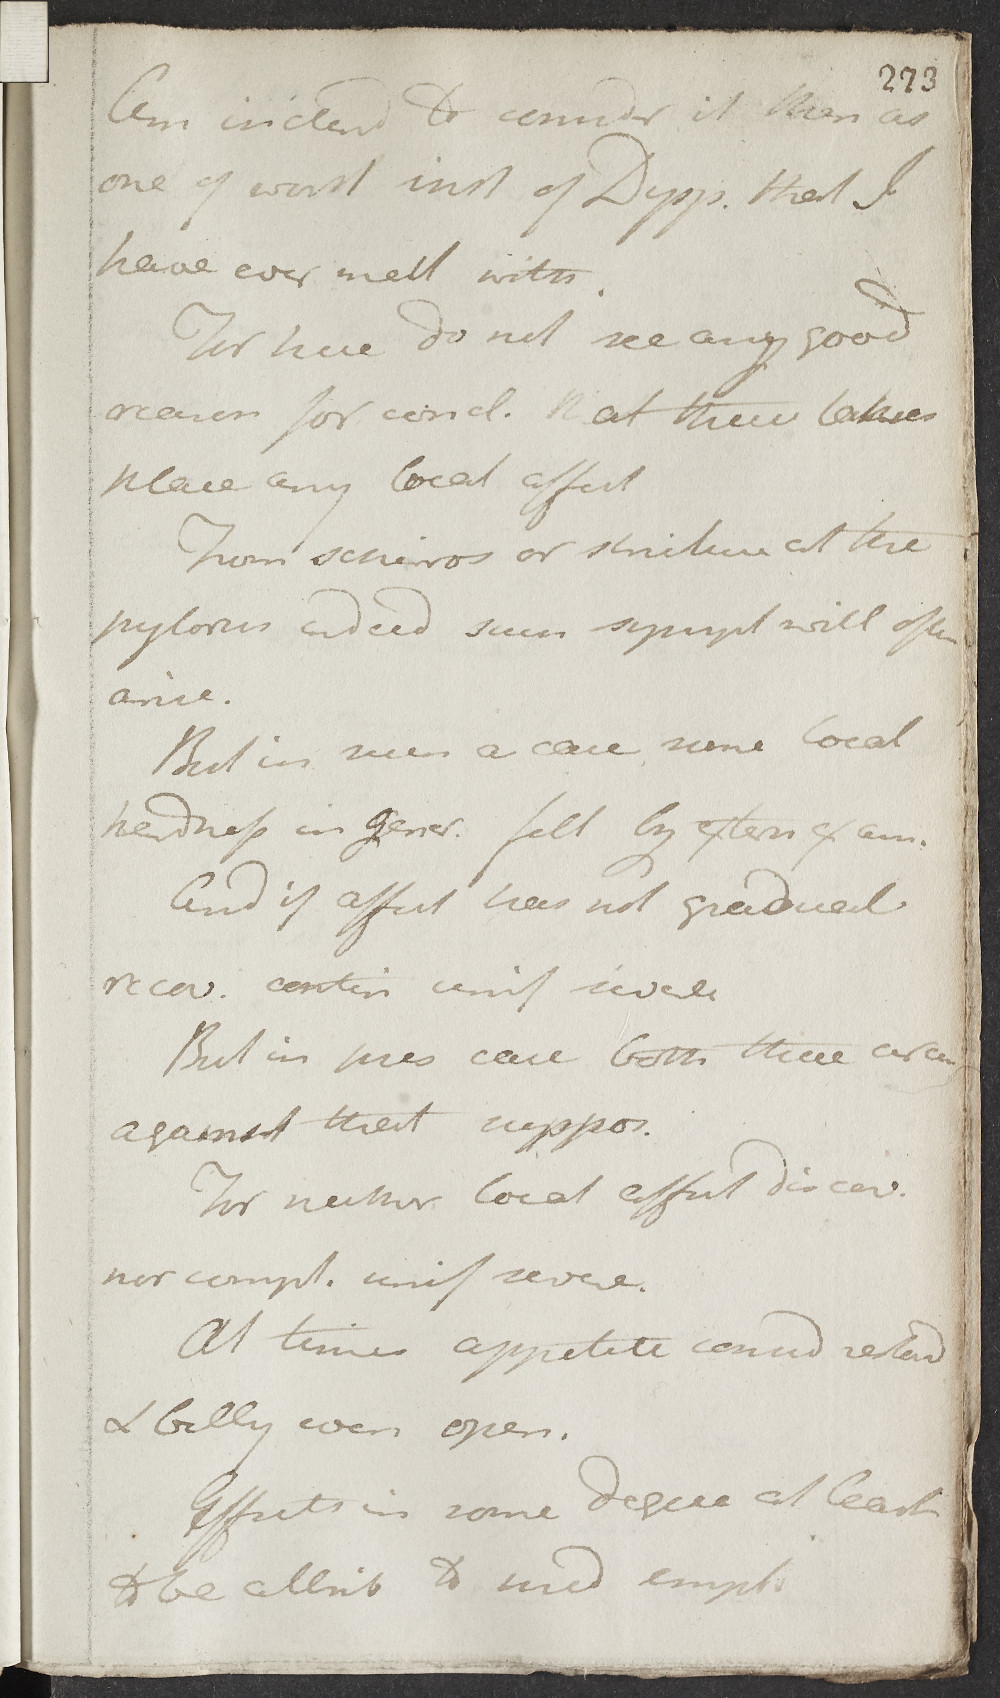 273
Am inclend to consider it then as
one of worst inst of Dysp. that I
have ever mett with.
For here do not see any good
reason for concl. that there takes
place any local affect
From schirros or stricture at the
pylorus indeed such sympt will often
arise.
But in such a case some local
hardness in gener. felt by extern exam.
And if affect has not gradual
recov. contin unif severe
But in pres case both these circum
against that suppos.
For neither local affect discov.
nor compl. unif severe.
At times appetite consid restord
& belly even open.
Effects in some degree at least
to be attrib to med empl